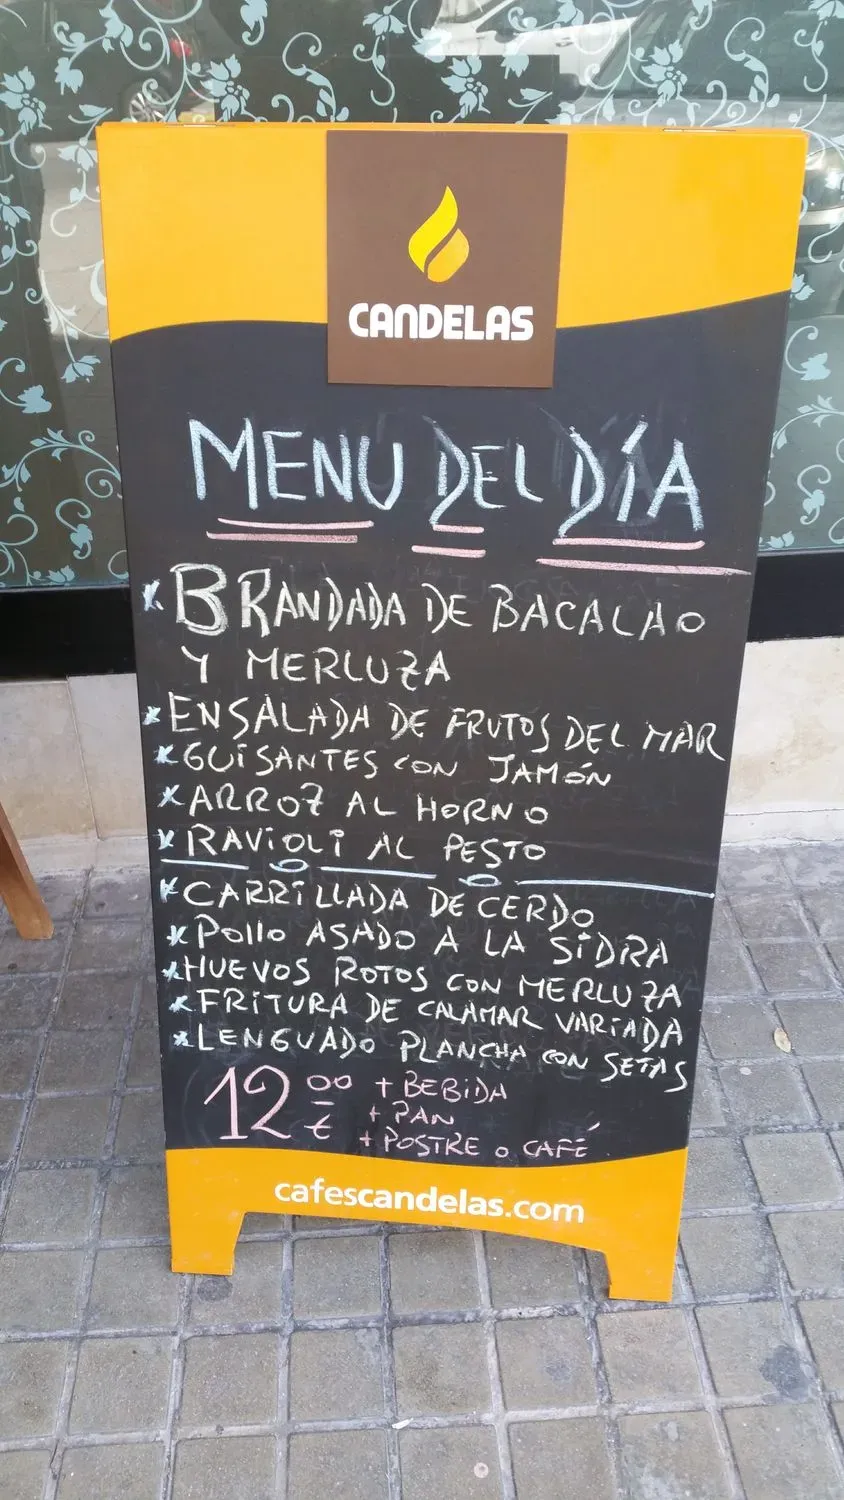 CANDELAS
MENU DEL DÍA
* BRANDADA DE BACALAO
Y MERLUZA
* ENSALADA DE FRUTOS DEL MAR
* GUISANTES CON JAMÓN
* ARROZ AL HORNO
* RAVIOLI AL PESTO
* CARRILLADA DE CERDO
* POLLO ASADO A LA SIDRA
* HUEVOS ROTOS CON MERLUZA
* FRITURA DE CALAMAR VARIADA
* LENGUADO PLANCHA CON SETAS
12 00 € + BEBIDA
+ PAN
+ POSTRE O CAFÉ
cafescandelas.com